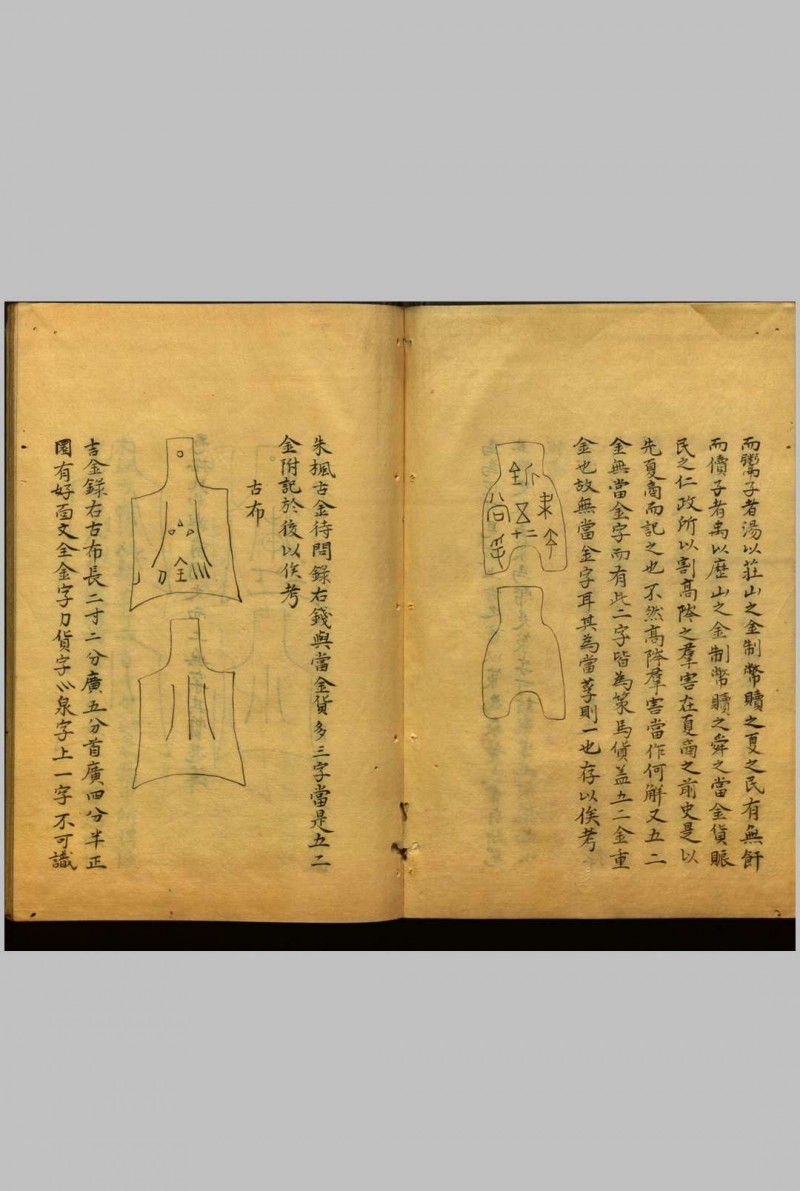 而鬻子者湯以莊山之金制幣贖之夏之民有無𩜾
而儥子者禹以歷山之金制幣贖之舜之當金貨賑
民之仁政所以割髙陊之羣害在夏商之前史是以
先夏商而記之也不然髙陊羣害當作何解又五二
金無當金字而有此二字皆為策馬貨盖五二金重
金也故無當金字耳其為當寽則一也存以俟考
朱楓古金待問錄右錢與當金貨多三字當是五二
金附記於後以俟考
古布
吉金錄右古布長二寸二分廣五分首廣四分半正
圜有好面文全金字刀貨字⺌泉字上一字不可識